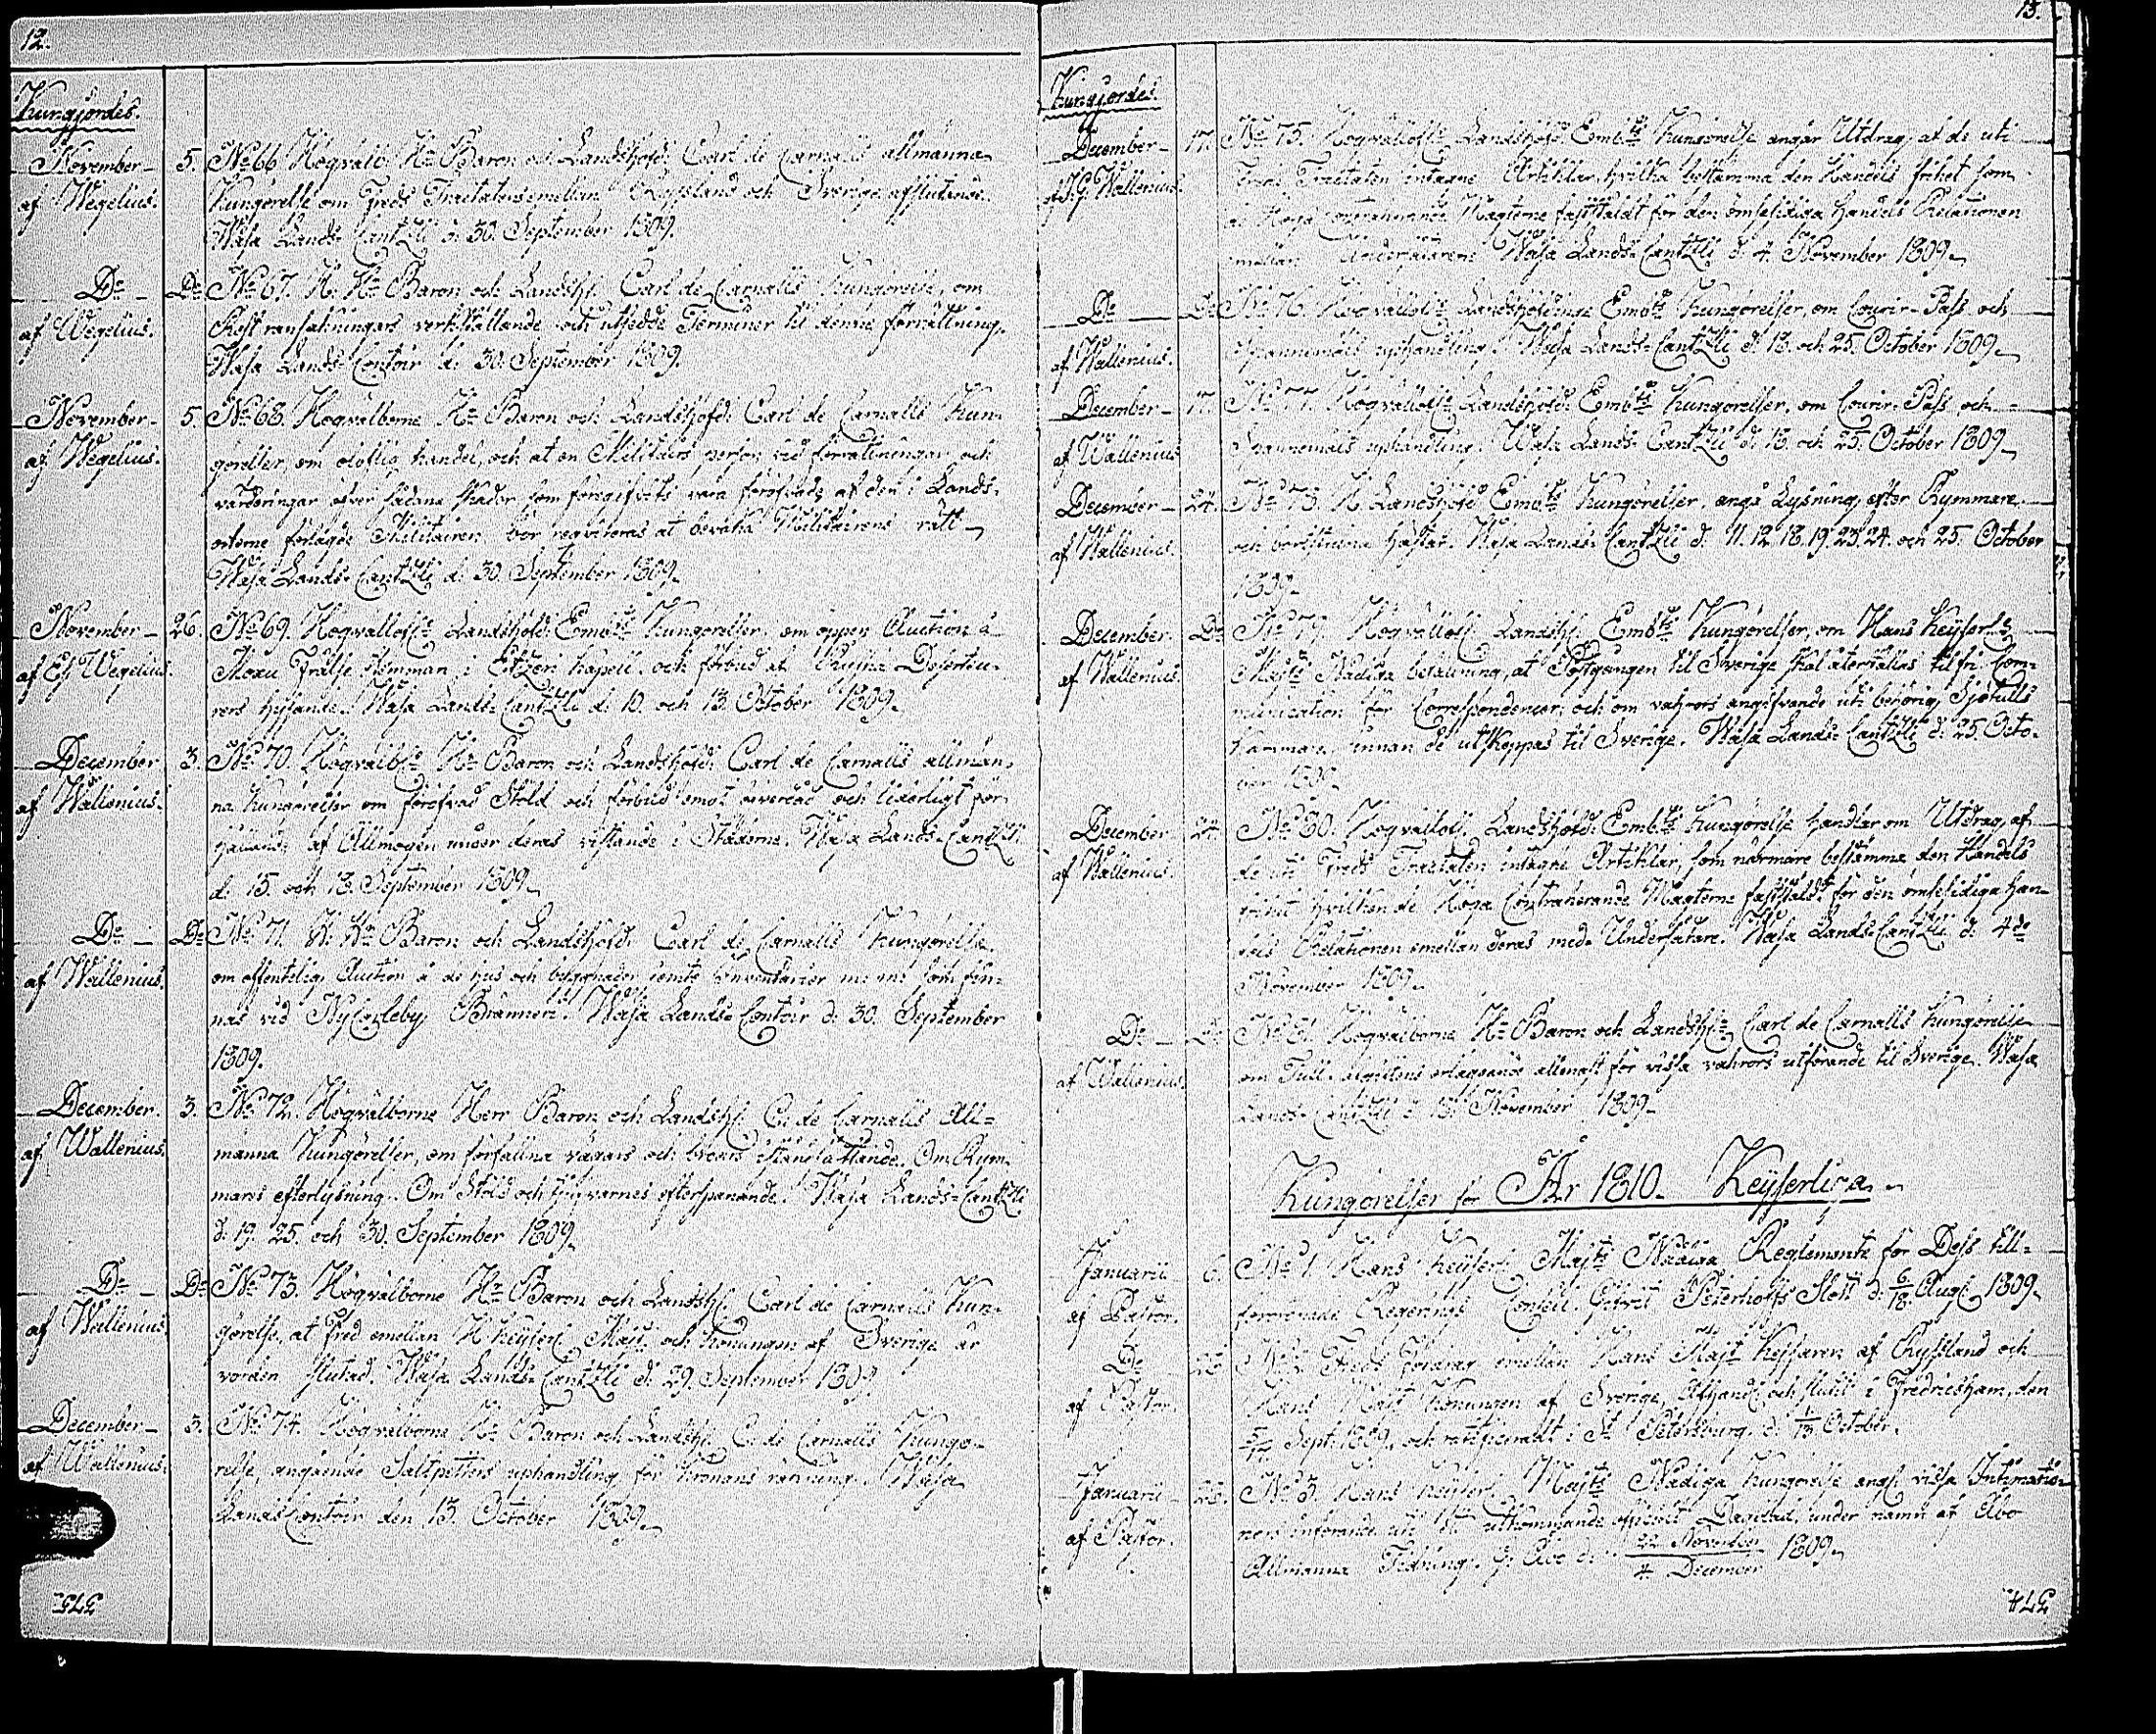 12.
Kungjordes.
November 5. No 66 Högvälb. Hr Baron och Landshöfd: Carl de Carnalls allmänna
af Wegelius. Kungörelse om Freds Tractatens emellan Ryssland och Sverige afslutande.
Wasa Lands Cantzli d: 30. September 1809.
Do Do No 67. H. Hr Baron och Landsh: Carl de Carnalls Kungörelse, om
af Wegelius. Rest ransakningars verkställande och utsedde Terminer til denne förrättning.
Wasa Lands Contoir d: 30. September 1809.
November 5. No 68. Högvälborne Hr Baron och Landshöfd: Carl de Carnalls Kun-
af Wegelius. görelser, om oloflig handel, och at en Militairs person vid förrättningar och
värderingar öfver sådana skador som föregifvits vara föröfvade af den i Lands-
orterne förlagde Militairen bör requireras at bevaka Militairens rätt
Wasa Lands Cantzli d: 30. September 1809.
November 26. No 69. Högvällofl. Landshöfd: Embts Kungörelser om öppen Auction å
af Ej Wegelius. Frälse Hemman i Kapell och förbud at Ryska Deserteu-
rers hysande. Wasa Lands Cantzli d: 10. och 13. October 1809.
December 3. No 70. Högvälb. Hr Baron och Landshöfd: Carl de Carnalls allmän-
af Wallenius. na Kungörelser om föröfvad Stöld och förbud emot och liderligt för-
hållande af Allmogen under deras vistande i Städerne. Wasa Lands-Cantzli
d: 15. och 18. September 1809.
Do Do No 71. H. Hr Baron och Landshöfd: Carl de Carnalls Kungörelse
af Wallenius. om offentelig Auction å de hus och byggnader jemte Inventarier m: m: som fin-
nas vid NyCarleby Bränneri. Wasa Lands Contoir d: 30. September
1809.
December. 3. No 72. Högvälborne Herr Baron och Landsh: C: de Carnalls All-
af Wallenius. männa Kungörelser, om förfallna vägars och broars iståndsättande. Om Rym-
mares efterlysning. Om Stöld och tjufvarnes efterspanande. Wasa Lands-Cantzli
d: 19. 25. och 30. September 1809.
Do Do No 73. Högvälborne Hr Baron och Landsh: Carl de Carnalls Kun-
af Wallenius. görelse, at Fred emellan H Keyserl: Majt och Konungen af Sverige är
vorden slutad. Wasa Lands Cantzli d: 29. September 1809.
December 3. No 74. Högvälborne Hr Baron och Landsh: C: de Carnalls Kungö-
af Wallenius. relse, angående Saltpetters uphandling för Kronans räkning. Wasa
Lands Contoir den 13. October 1809.
13.
Kungjordes.
December 17. No 75. Högvällofl. Landshöfd: Embts Kungörelse angår Utdrag af de uti
af J.G. Wallenius. Freds Tractaten intagne Artiklar, hvilka bestämma den Handels frihet som
de Höga Contraherande Magterne fastställdt för den ömsesidiga Handels Relationen
emellan Undersåtarene Wasa Lands Cantzli d: 4. November 1809.
Do Do No 76. Högvällofl. Landshöfdinge Embts Kungörelser, om Courir-Pass och
af Wallenius. Spannemåls uphandling. Wasa Lands-Cantzli d: 13. och 25. October 1809.
December 17. No 77. Högvällofl. Landshöfd: Embts Kungörelser, om Courir-Pass och
af Wallenius Spannemåls uphandling. Wasa Lands Cantzli d: 13. och 25. October 1809.
December 24. No 78. H. Landshöfd: Embts Kungörelser, angå Lysning efter Rymmare
af Wallenius. och bortstulna hästar. Wasa Lands Cantzli d: 11. 12. 18. 19. 23. 24. och 25. October
1809.
December. Do No 79. Högvällofl. Landsh: Embts Kungörelser, om Hans Keyserl:
af Wallenius. Majts Nådiga befallning, at Postgången til Sverige skal återställas til fri Com-
munication för Correspondencer; och om vahrors angifvande uti behörig Sjötulls
Kammare, innan de utskeppas til Sverige. Wasa Lands Cantzli d: 25 Octo-
ber 1809.
December 24. No 80. Högvällofl. Landshöfd: Embts Kungörelse handlar om Utdrag af
af Wallenius. de uti Freds Tractaten intagne Artiklar, som närmare bestämma den Handels
frihet hvilken de Höga Contraherande Magterne fastställdt för den ömsesidiga Han-
dels Relationen emellan deras med Undersåtare. Wasa Lands Cantzli d: 4de
November 1809.
Do Do No 81. Högvälborne Hr Baron och Landsh: Carl de Carnalls Kungörelse
af Wallenius. om Tull erläggande allenast för vissa vahrors utförande til Sverige. Wasa
Lands Cantzli d: 13. November 1809.
Kungörelser för År 1810. Keyserliga.
Januarii 6. No 1. Hans Keyserl: Majts Nådiga Reglemente för Dess till-
af Pastor. förordnade Regerings Conseil. Gifvit Peterhoffs Slott d: 6/18. Aug: 1809.
Do 23. No 2. Freds Fördrag emellan Hans Majt Kejsaren af Ryssland och
af Pastor. Hans Majt Konungen af Sverige, Afhandl: och slutit i Fredricsham, den
5/17 Sept: 1809. och ratificeradt i St Petersburg. d: 1/13 October.
Januarii 23. No 3. Hans Keyserl: Majts Nådiga Kungörelse ang: vissa Intimatio-
af Pastor. ners införande uti det utkommande officielt Dagblad, under namn af Åbo
Allmänna Tidning. G: Åbo d: 22 November/4. December 1809.
375
374